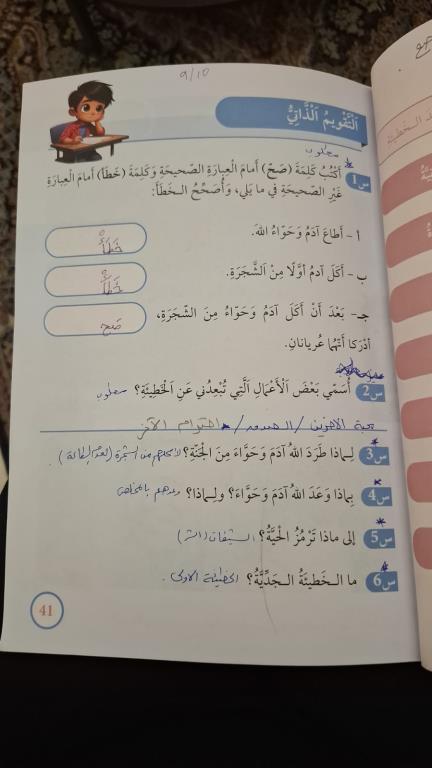 9/10
اَلتَّقْوِيمُ اَلذَّاتِيُّ
مطلوب
س1 أَكْتُبُ كَلِمَةَ (صَحّ) أَمامَ الْعِبارَةِ الصَّحيحَةِ وَكَلِمَةَ (خَطَأ) أَمامَ الْعِبارَةِ
غَيْرِ الصَّحيحَةِ في ما يَلي، وَأُصَحِّحُ الـخَطَأَ:
أ - أَطاعَ آدَمُ وَحَوّاءُ اللهَ. خَطَأ
ب - أَكَلَ آدمُ أَوَّلًا مِنَ الشَّجَرَةِ. خَطَأ
جـ - بَعْدَ أَنْ أَكَلَ آدَمُ وَحَوّاءُ مِنَ الشَّجَرَةِ، صَح
أَدْرَكا أَنَّهُما عُرْيانانِ.
س2 أُسَمّي بَعْضَ الْأَعْمَالِ الَّتِي تُبْعِدُني عَنِ الْخَطِيئَةِ؟ مطلوب
محبة الآخرين / الصدق / احترام الآخر
س3 لِـماذا طَرَدَ اللهُ آدَمَ وَحَوّاءَ مِنَ الْجَنَّةِ؟ لأكلهم من الشجرة (لعدم الطاعة)
س4 بِماذا وَعَدَ اللهُ آدَمَ وَحَوّاءَ؟ ولِـماذا؟ وعدهم بالمخلص
س5 إلى ماذا تَرْمُزُ الْحَيَّةُ؟ الشيطان (الشر)
س6 ما الـخَطيئَةُ الـجَدِّيَّةُ؟ الخطيئة الأولى.
41